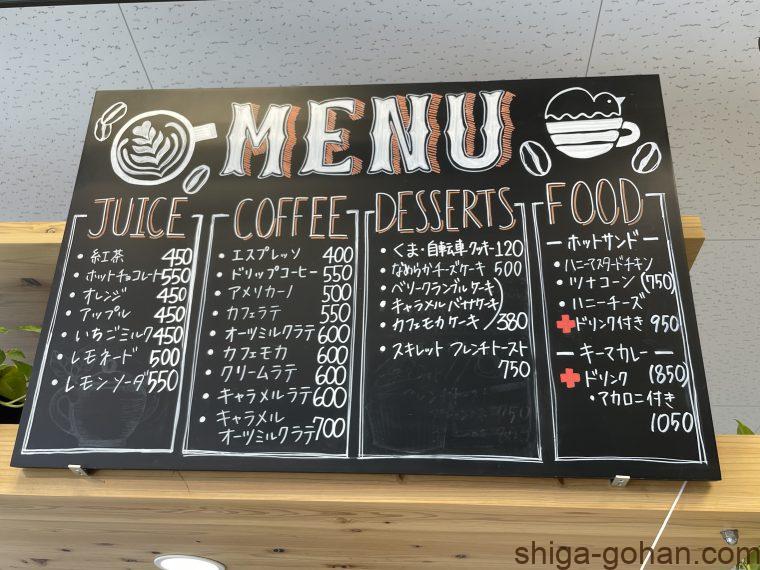 MENU
JUICE
・紅茶 450
・ホットチョコレート 550
・オレンジ 450
・アップル 450
・いちごミルク 450
・レモネード 500
・レモンソーダ 550
COFFEE
・エスプレッソ 400
・ドリップコーヒー 550
・アメリカーノ 500
・カフェラテ 550
・オーツミルクラテ 600
・カフェモカ 600
・クリームラテ 600
・キャラメルラテ 600
・キャラメル
オーツミルクラテ 700
DESSERTS
・くま・自転車クッキー 120
・なめらかチーズケーキ 500
・ベリークランブルケーキ
・キャラメルバナナケーキ
・カフェモカケーキ 380
・スキレット フレンチトースト
750
FOOD
ーホットサンドー
・ハニーマスタードチキン
・ツナコーン (750)
・ハニーチーズ
+ドリンク付き 950
ーキーマカレーー
+ドリンク (850)
・マカロニ付き
1050
shiga-gohan.com